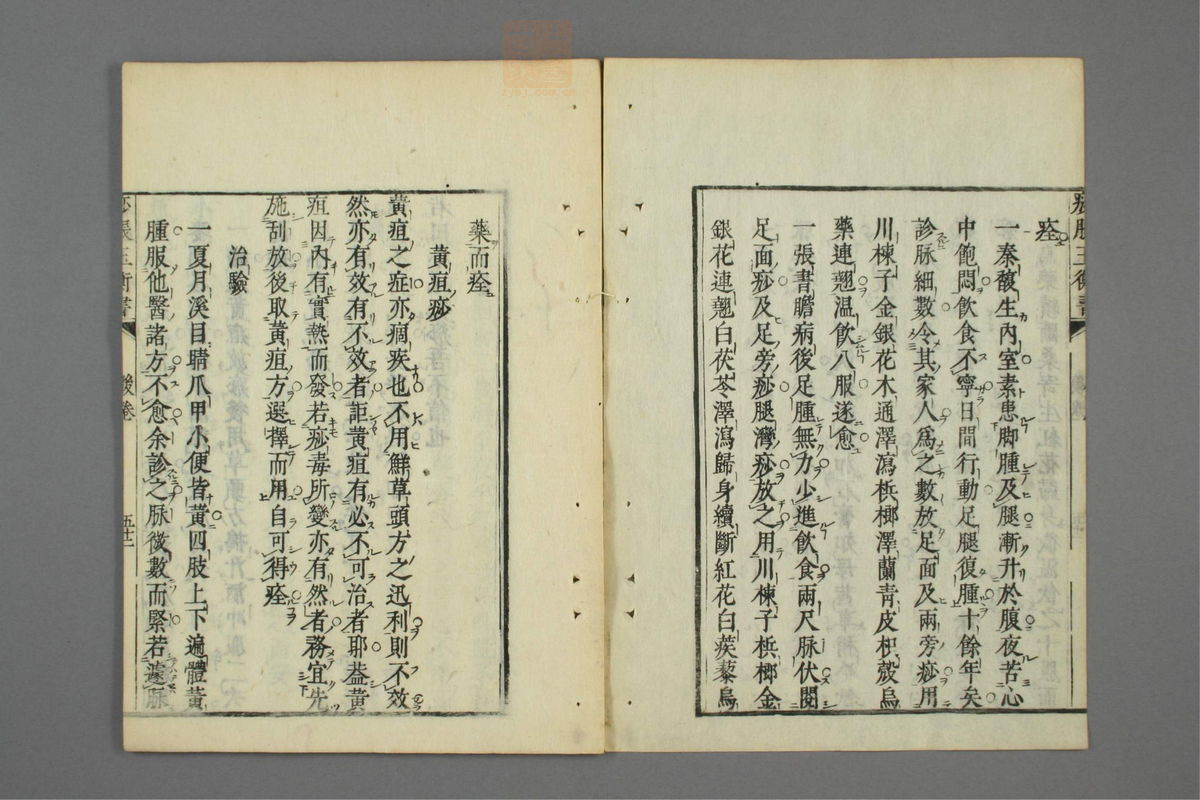 痊
一秦馥生內室素患脚腫及腿漸升於腹夜苦心
中飽悶飲食不寧日間行動足腿復腫十餘年矣
診脉細數令其家人爲之數放足面及兩旁痧用
川楝子金銀花木通澤瀉梹榔澤蘭青皮枳殼烏
藥連翹温飲八服遂愈
一張書瞻病後足腫無力少進飲食兩尺脉伏閱
足面痧及足旁痧腿灣痧放之用川楝子梹榔金
銀花連翹白茯苓澤瀉歸身續斷紅花白蒺藜烏
藥而痊
黃疸痧
黃疸之症亦痼疾也不用鮮草頭方之迅利則不效
然亦有效有不效者詎黃疸有必不可治者耶葢黃
疸因內有實熱而發若痧毒所變亦有然者務宜先
施刮放後取黃疸方選擇而用自可得痊
治驗
一夏月溪目睛爪甲小便皆黃四肢上下遍體黃
腫服他醫諸方不愈余診之脉微數而緊若
後卷
zysj.com.cn